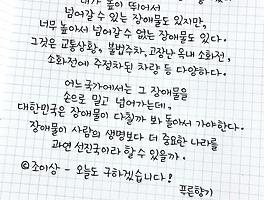 내가 높이 뛰어서
넘어갈 수 있는 장애물도 있지만,
너무 높아서 넘어갈 수 없는 장애물도 있다.
그것은 교통상황, 불법주차, 고장난 옥내 소화전,
소화전에 주정차된 차량 등 다양하다.
어느 국가에서는 그 장애물을
손으로 밀고 넘어가는데,
대한민국은 장애물이 다칠까 봐 돌아서 가야한다.
장애물이 사람의 생명보다 더 중요한 나라를
과연 선진국이라 할 수 있을까.
©조이상 - 오늘도 구하겠습니다!
푸른향기